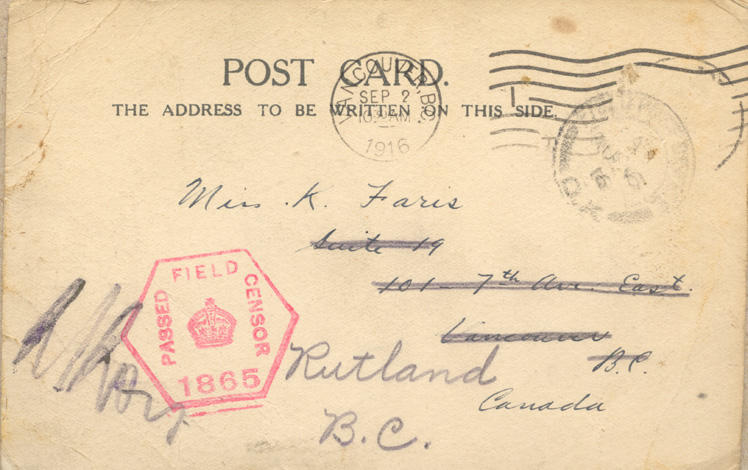 POST CARD.
THE ADDRESS TO BE WRITTEN ON THIS SIDE.
VANCOUVER, B.C.
SEP 2
1916
Miss K. Faris
Suite 19
101 - 7th Ave. East.
Vancouver
B.C.
Canada
Rutland
B.C.
PASSED FIELD CENSOR
1865